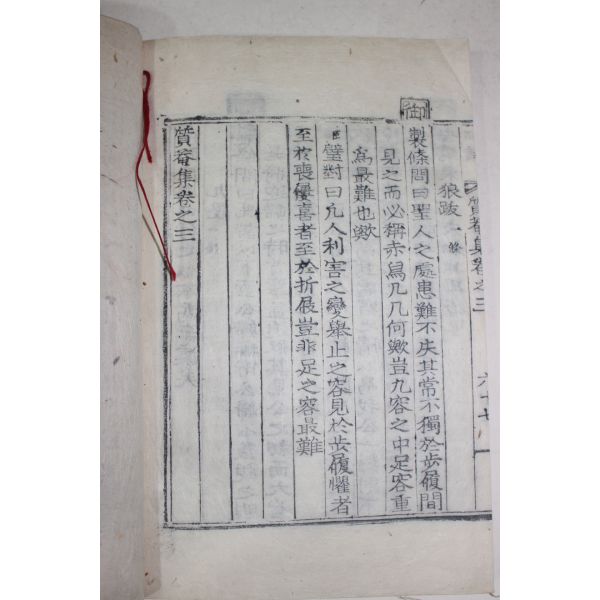 質菴集卷之三 六十七
狼跋 一條
御製條問曰聖人之處患難不失其常不獨於步履間
見之而必稱赤舄几几何歟豈九容之中足容重
爲最難也歟
臣璧對曰凡人利害之變舉止之容見於步履懼者
至於喪屨喜者至於折屐豈非足之容最難
質菴集卷之三